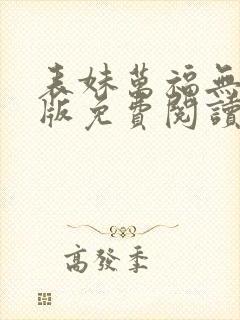 表妹萬福無
版免費閱讀
高發季